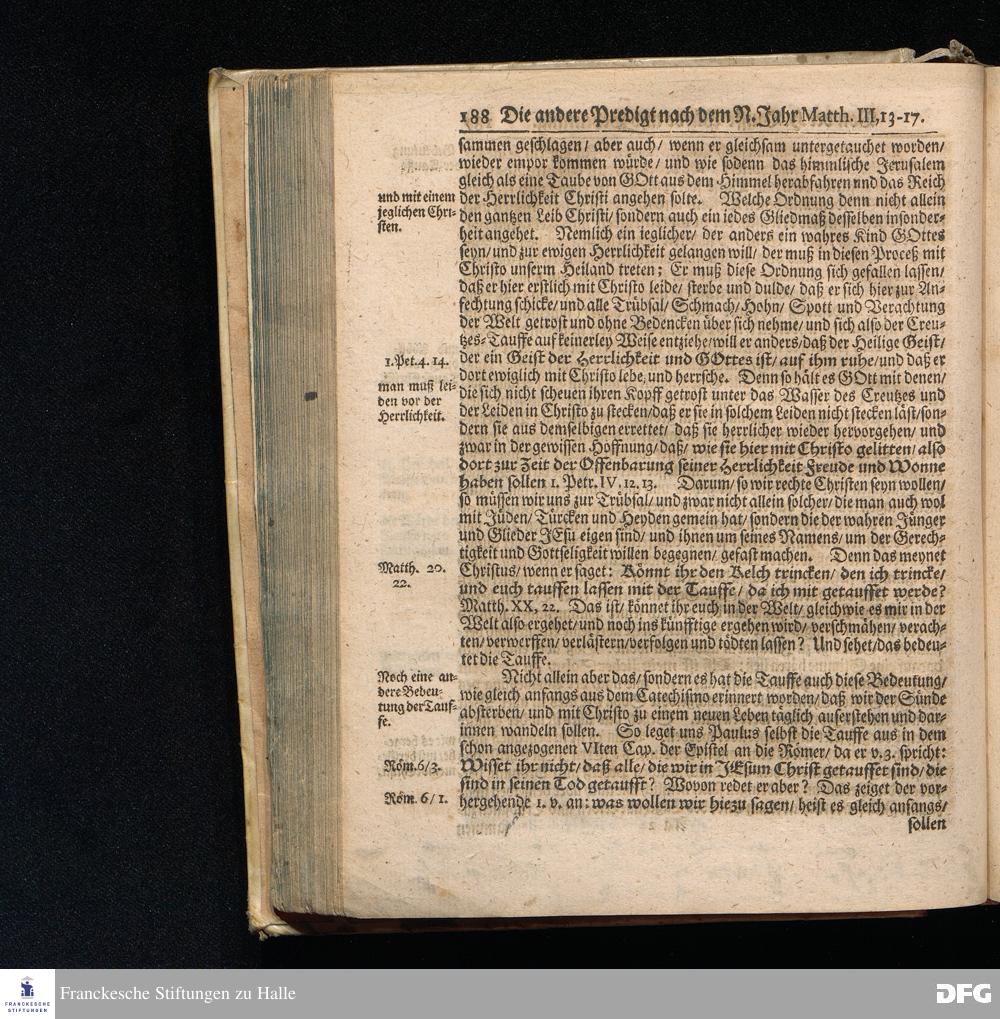 188 Die andere Predigt nach dem N. Jahr Matth. III, 13-17.
sammen geschlagen/ aber auch/ wenn er gleichsam untergetauchet worden/
wieder empor kommen würde/ und wie sodenn das himmlische Jerusalem
gleich als eine Taube von GOtt aus dem Himmel herabfahren und das Reich
der Herrlichkeit Christi angehen solte. Welche Ordnung denn nicht allein
den gantzen Leib Christi/ sondern auch ein iedes Gliedmaß desselben insonder-
heit angehet. Nemlich ein ieglicher/ der anders ein wahres Kind GOttes
seyn/ und zur ewigen Herrlichkeit gelangen will/ der muß in diesen Proceß mit
Christo unserm Heiland treten; Er muß diese Ordnung sich gefallen lassen/
daß er hier erstlich mit Christo leide/ sterbe und dulde/ daß er sich hier zur An-
fechtung schicke/ und alle Trübsal/ Schmach/ Hohn/ Spott und Verachtung
der Welt getrost und ohne Bedencken über sich nehme/ und sich also der Creu-
tzes-Tauffe auf keinerley Weise entziehe/ will er anders/ daß der Heilige Geist/
der ein Geist der Herrlichkeit und GOttes ist/ auf ihm ruhe/ und daß er
dort ewiglich mit Christo lebe und herrsche. Denn so hält es GOtt mit denen/
die sich nicht scheuen ihren Kopff getrost unter das Wasser des Creutzes und
der Leiden in Christo zu stecken/ daß er sie in solchem Leiden nicht stecken läst/ son-
dern sie aus demselbigen errettet/ daß sie herrlicher wieder hervorgehen/ und
zwar in der gewissen Hoffnung/ daß/ wie sie hier mit Christo gelitten/ also
dort zur Zeit der Offenbarung seiner Herrlichkeit Freude und Wonne
haben sollen 1. Petr. IV, 12. 13. Darum/ so wir rechte Christen seyn wollen/
so müssen wir uns zur Trübsal/ und zwar nicht allein solcher/ die man auch wol
mit Jüden/ Türcken und Heyden gemein hat/ sondern die der wahren Jünger
und Glieder JEsu eigen sind/ und ihnen um seines Namens/ um der Gerech-
tigkeit und Gottseligkeit willen begegnen/ gefast machen. Denn das meynet
Christus/ wenn er saget: Könnt ihr den Kelch trincken/ den ich trincke/
und euch tauffen lassen mit der Tauffe/ da ich mit getauffet werde?
Matth. XX, 22. Das ist/ könnet ihr euch in der Welt/ gleichwie es mir in der
Welt also ergehet/ und noch ins künfftige ergehen wird/ verschmähen/ verach-
ten/ verwerffen/ verlästern/ verfolgen und tödten lassen? Und sehet/ das bedeu-
tet die Tauffe.
Nicht allein aber das/ sondern es hat die Tauffe auch diese Bedeutung/
wie gleich anfangs aus dem Catechismo erinnert worden/ daß wir der Sünde
absterben/ und mit Christo zu einem neuen Leben täglich auferstehen und dar-
innen wandeln sollen. So leget uns Paulus selbst die Tauffe aus in dem
schon angezogenen VIten Cap. der Epistel an die Römer/ da er v. 3. spricht:
Wisset ihr nicht/ daß alle/ die wir in JEsum Christ getauffet sind/ die
sind in seinen Tod getaufft? Wovon redet er aber? Das zeiget der vor-
hergehende 1. v. an: was wollen wir hiezu sagen/ heist es gleich anfangs/
sollen
und mit einem
jeglichen Chri-
sten.
1. Pet. 4. 14.
man muß lei-
den vor der
Herrlichkeit.
Matth. 20.
22.
Noch eine an-
dere Bedeu-
tung der Tauf-
fe.
Röm. 6/ 3.
Röm. 6/ 1.
FRANCKESCHE
STIFTUNGEN
Franckesche Stiftungen zu Halle
DFG